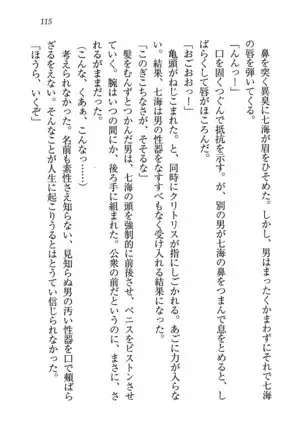 115
鼻を突く異臭に七海が眉をひそめた。しかし、男はまったくかまわずにそれで七海
の唇を弾いてくる。
「んんっ！」
口を固くつぐんで抵抗を示す。が、別の男が七海の鼻をつまんで息をとめると、し
ばらくして唇がほころんだ。
「おごおおっ！」
亀頭がねじこまれた。と、同時にクリトリスが扱しごかれる。あごに力が入らな
い。結果、七海は男の性器をなすすべもなく受け入れる結果になった。
「このぎこちなさが、そそるな」
髪をむんずとつかんだ男は、七海の頭を強制的に前後させ、ペニスをピストンさせ
ていく。腕はいつの間にか、後ろ手に組まれた。公衆の前だというのに、まさに、さ
れるがままだった。
（こんな、くあぁ、こんなっ……）
考えられなかった。名前も素性さえ知らない、見知らぬ男の汚い性器を口で頬ばら
されている。そんなことが人生に起こりうるとはとうてい信じられなかった。
「ほうら、いくぞ」